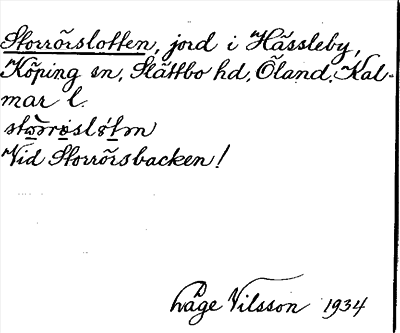 Storrörslotten, jord i Hässleby,
Köping sn, Slättbo hd, Öland, Kal-
mar l.
Vid Storrörsbacken!
Åge Nilsson 1934